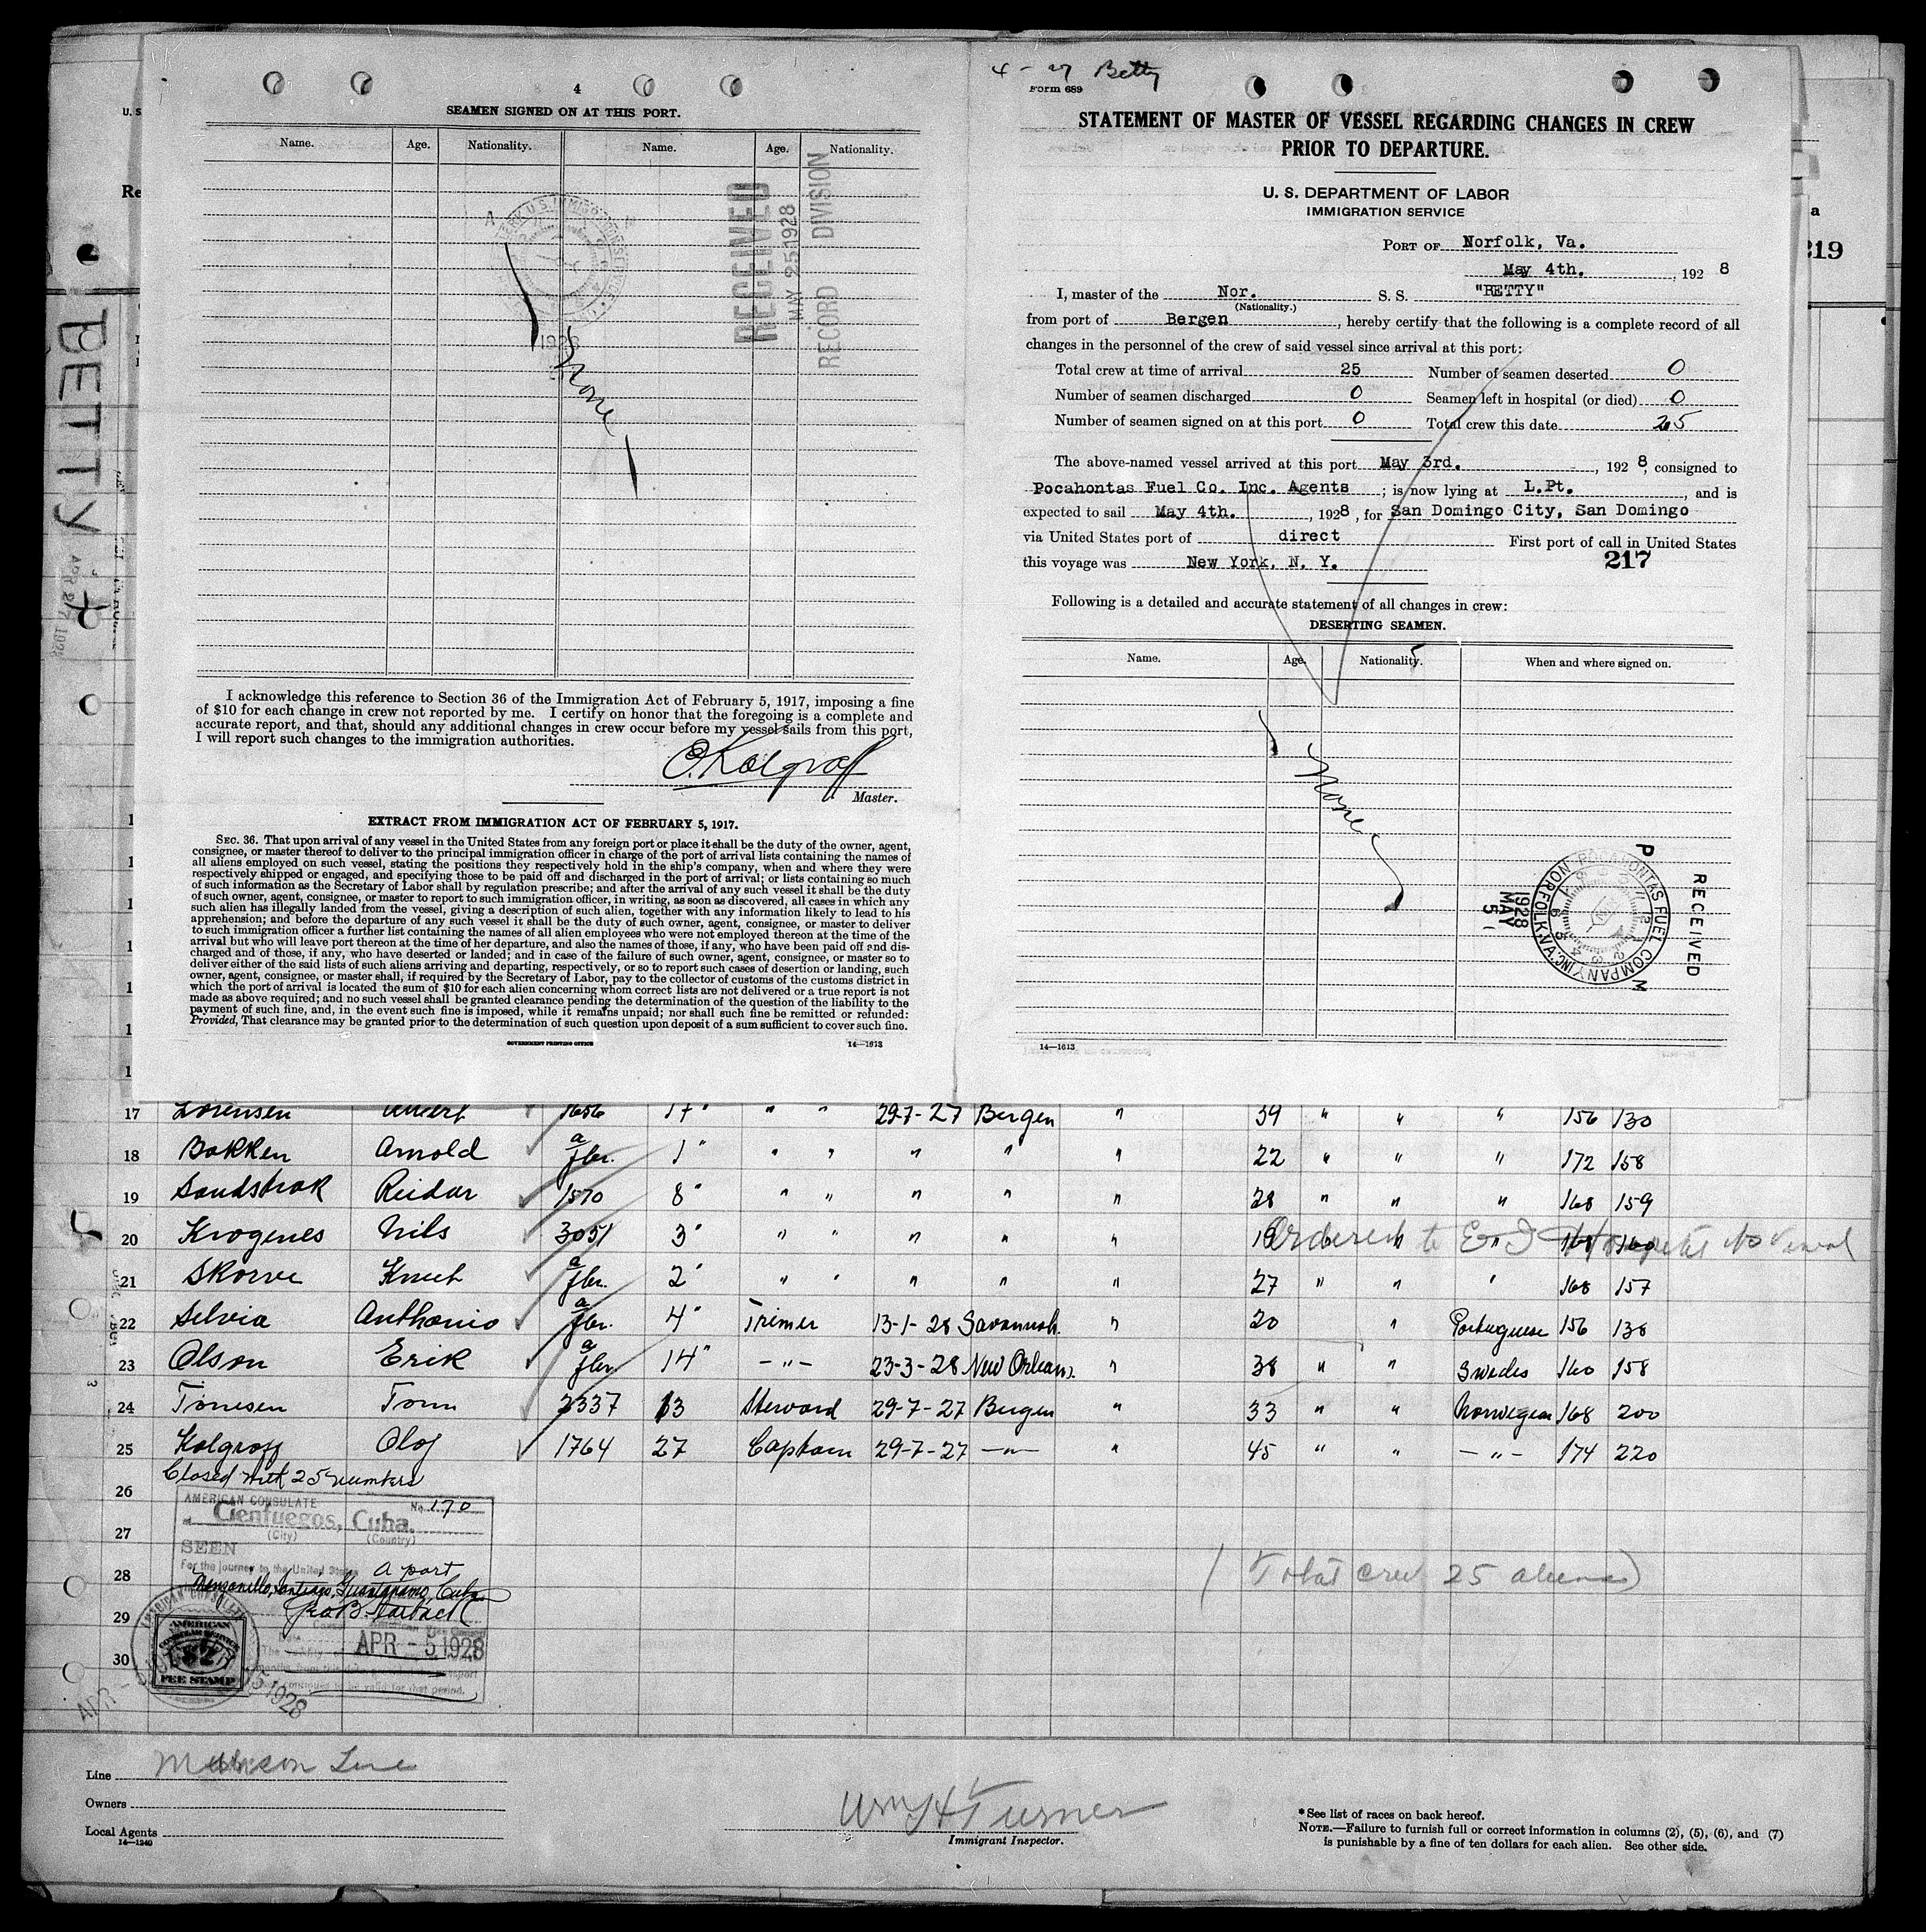 4
SEAMEN SIGNED ON AT THIS PORT.
Name. Age. Nationality. Name. Age. Nationality.
RECEIVED
MAY 25 1928
RECORD DIVISION
1928
None
I acknowledge this reference to Section 36 of the Immigration Act of February 5, 1917, imposing a fine
of $10 for each change in crew not reported by me. I certify on honor that the foregoing is a complete and
accurate report, and that, should any additional changes in crew occur before my vessel sails from this port,
I will report such changes to the immigration authorities.
O. Kolgroff
Master.
EXTRACT FROM IMMIGRATION ACT OF FEBRUARY 5, 1917.
SEC. 36. That upon arrival of any vessel in the United States from any foreign port or place it shall be the duty of the owner, agent,
consignee, or master thereof to deliver to the principal immigration officer in charge of the port of arrival lists containing the names of
all aliens employed on such vessel, stating the positions they respectively hold in the ship's company, when and where they were
respectively shipped or engaged, and specifying those to be paid off and discharged in the port of arrival; or lists containing so much
of such information as the Secretary of Labor shall by regulation prescribe; and after the arrival of any such vessel it shall be the duty
of such owner, agent, consignee, or master to report to such immigration officer, in writing, as soon as discovered, all cases in which any
such alien has illegally landed from the vessel, giving a description of such alien, together with any information likely to lead to his
apprehension; and before the departure of any such vessel it shall be the duty of such owner, agent, consignee, or master to deliver
to such immigration officer a further list containing the names of all alien employees who were not employed thereon at the time of the
arrival but who will leave port thereon at the time of her departure, and also the names of those, if any, who have been paid off and dis-
charged and of those, if any, who have deserted or landed; and in case of the failure of such owner, agent, consignee, or master so to
deliver either of the said lists of such aliens arriving and departing, respectively, or so to report such cases of desertion or landing, such
owner, agent, consignee, or master shall, if required by the Secretary of Labor, pay to the collector of customs of the customs district in
which the port of arrival is located the sum of $10 for each alien concerning whom correct lists are not delivered or a true report is not
made as above required; and no such vessel shall be granted clearance pending the determination of the question of the liability to the
payment of such fine, and, in the event such fine is imposed, while it remains unpaid; nor shall such fine be remitted or refunded:
Provided, That clearance may be granted prior to the determination of such question upon deposit of a sum sufficient to cover such fine.
GOVERNMENT PRINTING OFFICE 14—1613
4 - 27 Betty
Form 689
STATEMENT OF MASTER OF VESSEL REGARDING CHANGES IN CREW
PRIOR TO DEPARTURE.
U. S. DEPARTMENT OF LABOR
IMMIGRATION SERVICE
PORT OF Norfolk, Va.
May 4th. , 192 8
I, master of the Nor. S. S. "BETTY"
(Nationality.)
from port of Bergen , hereby certify that the following is a complete record of all
changes in the personnel of the crew of said vessel since arrival at this port:
Total crew at time of arrival 25 Number of seamen deserted 0
Number of seamen discharged 0 Seamen left in hospital (or died) 0
Number of seamen signed on at this port 0 Total crew this date 25
The above-named vessel arrived at this port May 3rd. , 192 8, consigned to
Pocahontas Fuel Co. Inc. Agents ; is now lying at L.Pt. , and is
expected to sail May 4th. , 1928 , for San Domingo City, San Domingo
via United States port of direct First port of call in United States
this voyage was New York, N. Y. 217
Following is a detailed and accurate statement of all changes in crew:
DESERTING SEAMEN.
Name. Age. Nationality. When and where signed on.
None
RECEIVED
POCAHONTAS FUEL COMPANY INC.
NORFOLK, VA.
P M
1928
MAY
5
14—1613
U. S
Re
a
219
BETTY
APR 27 1928
17 Lorensen Albert 1656 17" " " 29-7-27 Bergen " 39 " " " 156 130
18 Bakken Arnold a fbr. 1" " " " " " 22 " " " 172 158
19 Sandstrak Reidar 1570 8" " " " " " 28 " " " 168 159
20 Krogenes Nils 3051 3" " " " " " 19 " " 168 160
Ordered to E I Hospital
21 Skorve Knut a fbr. 2" " " " " " 27 " " " 168 157
22 Selvia Anthonio a fbr. 4" Trimer 13-1-28 Savannah. " 20 " Portuguese 156 138
23 Olson Erik a fbr. 14" —"— 23-3-28 New Orleans. " 38 " " Swedes 160 158
24 Tonnesen Tom 2337 13 Steward 29-7-27 Bergen " 33 " " Norwegian 168 200
25 Kolgroff Olof 1764 27 Captain 29-7-27 —"— " 45 " " —"— 174 220
Closed with 25 numbers
26
27
28
29
30
AMERICAN CONSULATE No. 170
at Cienfuegos, Cuba.
(City) (Country)
SEEN
For the journey to the United States
a port
Manzanillo, Santiago, Guantanamo, Cuba
APR - 5 1928
AMERICAN
CONSULAR SERVICE
$2
FEE STAMP
APR - 5 1928
continues to be valid for that period.
( Total crew 25 aliens )
Line Munson Line
Owners
Local Agents
14—1240
Wm H Turner
Immigrant Inspector.
* See list of races on back hereof.
NOTE.—Failure to furnish full or correct information in columns (2), (5), (6), and (7)
is punishable by a fine of ten dollars for each alien. See other side.